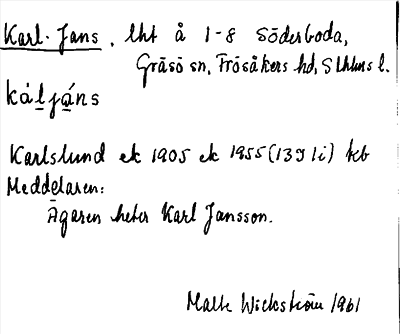 Karl-Jans, lht å 1-8 Söderboda,
Gräsö sn, Frösåkers hd, Sthlms l.
kál̲já̲ns
Karlslund ek 1905 ek 1955 (13I 1i) kb
Meddelaren:
Ägaren heter Karl Jansson.
Malte Wickström 1961